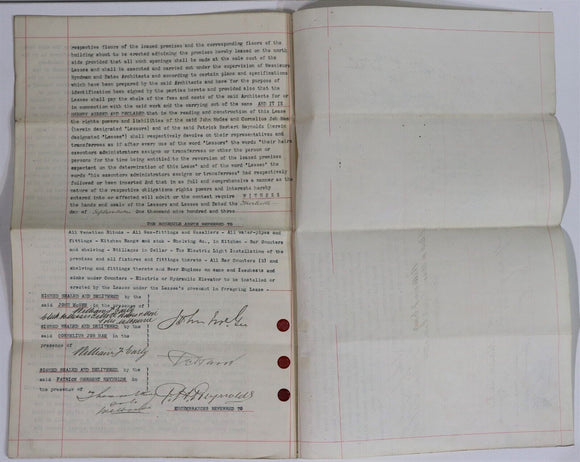 respective floors of the leased premises and the corresponding floors of the
building about to be erected adjoining the premises hereby leased on the north
side provided that all such openings shall be made at the sole cost of the
Lessee and shall be executed and carried out under the supervision of Messieurs
Hyndman and Bates Architects and according to certain plans and specifications
which have been prepared by the said Architects and have for the purpose of
identification been signed by the parties hereto and provided also that the
Lessee shall pay the whole of the fees and costs of the said Architects for or
in connection with the said work and the carrying out of the same AND IT IS
HEREBY AGREED AND DECLARED that in the reading and construction of this Lease
the rights powers and liabilities of the said John and Cornelius Job Ham
(herein designated "Lessors) and of the said Patrick Herbert Reynolds (herein
designated "Lessee") shall respectively devolve on their representatives and
transferees as if after every use of the word "Lessors" the words "their heirs
executors administrators assigns or transferees or other the person or
persons for the time being entitled to the reversion of the leased premises
expectant on the determination of this Lease" and of the word "Lessee" the words
"his executors administrators assigns or transferees" had respectively
followed or been inserted And that in as full and comprehensive a manner as the
nature of the respective obligations rights powers and interests hereby
entered into or affected will admit or the context require WITNESS
the hands and seals of the Lessors and Lessee and dated the
day of September One thousand nine hundred and three.
THE SCHEDULE ABOVE REFERRED TO
All Venetian Blinds - All Gas-fittings and Gasaliers - All Water-pipes and
fittings - Kitchen Range and sink - Shelving &c., in Kitchen - Bar Counters
and shelving - Stillages in Cellar - The Electric Light Installation of the
premises and all fixtures and fittings thereto - All Bar Counters (3) and
shelving and fittings thereto and Beer Engines on same and leadbeats and
sinks under Counters - Electric or Hydraulic Elevator to be installed or
erected by the Lessee under the Lessee's covenant in foregoing Lease -
SIGNED SEALED AND DELIVERED by the
said JOHN in the
presence of William J. Early
John
SIGNED SEALED AND DELIVERED by the
said CORNELIUS JOB HAM in the
presence of
William J. Early
SIGNED SEALED AND DELIVERED by the
said PATRICK HERBERT REYNOLDS in
the presence of
P. H. Reynolds
ENCUMBRANCES REFERRED TO